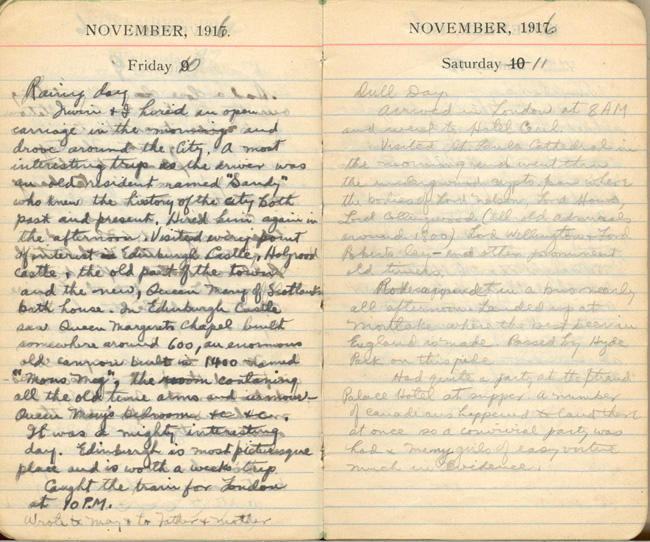 NOVEMBER, 1916.
Friday 10
Rainy day
Irwin & I hired an open
carriage in the mornings and
drove around the City. A most
interesting trip as the driver was
an old resident named "Sandy"
who knew the history of the city both
past and present. Hired him again in
the afternoon. Visited every point
of interest in Edinburgh Castle, Holyrood
Castle, the old part of the town
and the new, Queen Mary of Scotland's
bath house. In Edinburgh Castle
saw Queen Margarets Chapel built
somewhere around 600, an enormous
old cannon built in 1400 named
"Mons Meg", the room containing
all the old time arms and armour
Queen Mary's bedroom &c &c.
It was a mighty interesting
day. Edinburgh is most picturesque
place and is worth a weeks trip.
Caught the train for London
at 10 P.M.
Wrote to May & to Father & Mother
NOVEMBER, 1916
Saturday 10 11
Dull Day.
Arrived in London at 8 AM
and went to Hotel Cecil.
Visited St. Pauls Cathedral in
the morning and went thru
the underground crypts, saw where
the bodies of Lord Nelson, Lord Howe,
Lord Collingwood (All old admirals
around 1800) Lord Wellington & Lord
Roberts lay - and other prominent
old timers.
Rode on a bus nearly
all afternoon. Landed up at
Mortlake where the best beer in
England is made. Passed by Hyde
Park on this
Had quite a party at the Strand
Palace Hotel at supper. A number
of Canadians happened to land there
at once so a convivial party was
had & many girls of easy virtue
much in evidence.